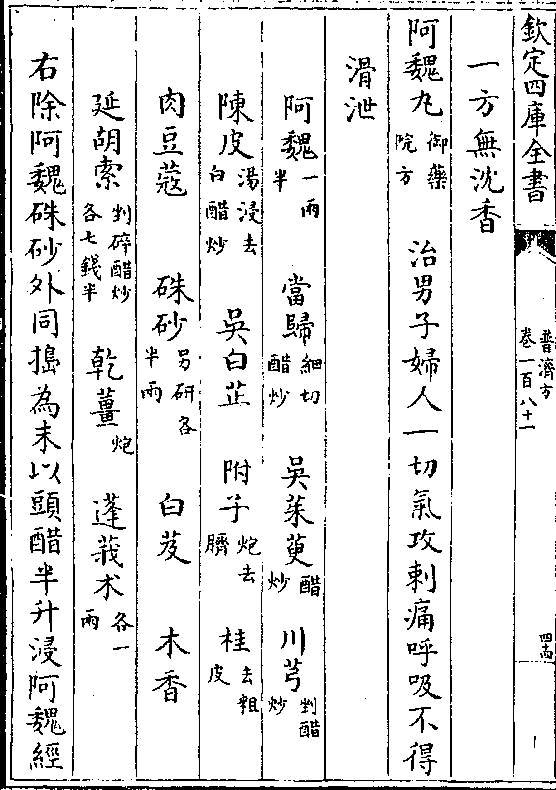 欽定四庫全書
普濟方
卷一百八十一
一方無沈香
阿魏丸御藥院方 治男子婦人一切氣攻刺痛呼吸不得
滑泄
阿魏一兩半 當歸細切醋炒 吳茱萸醋炒 川芎剉醋炒
陳皮湯浸去白醋炒 吳白芷 附子炮去臍 桂去粗皮
肉豆蔻 硃砂另研各半兩 白芨 木香
延胡索剉碎醋炒各七錢半 乾薑炮 蓬莪朮各一兩
右除阿魏硃砂外同搗為末以頭醋半升浸阿魏經